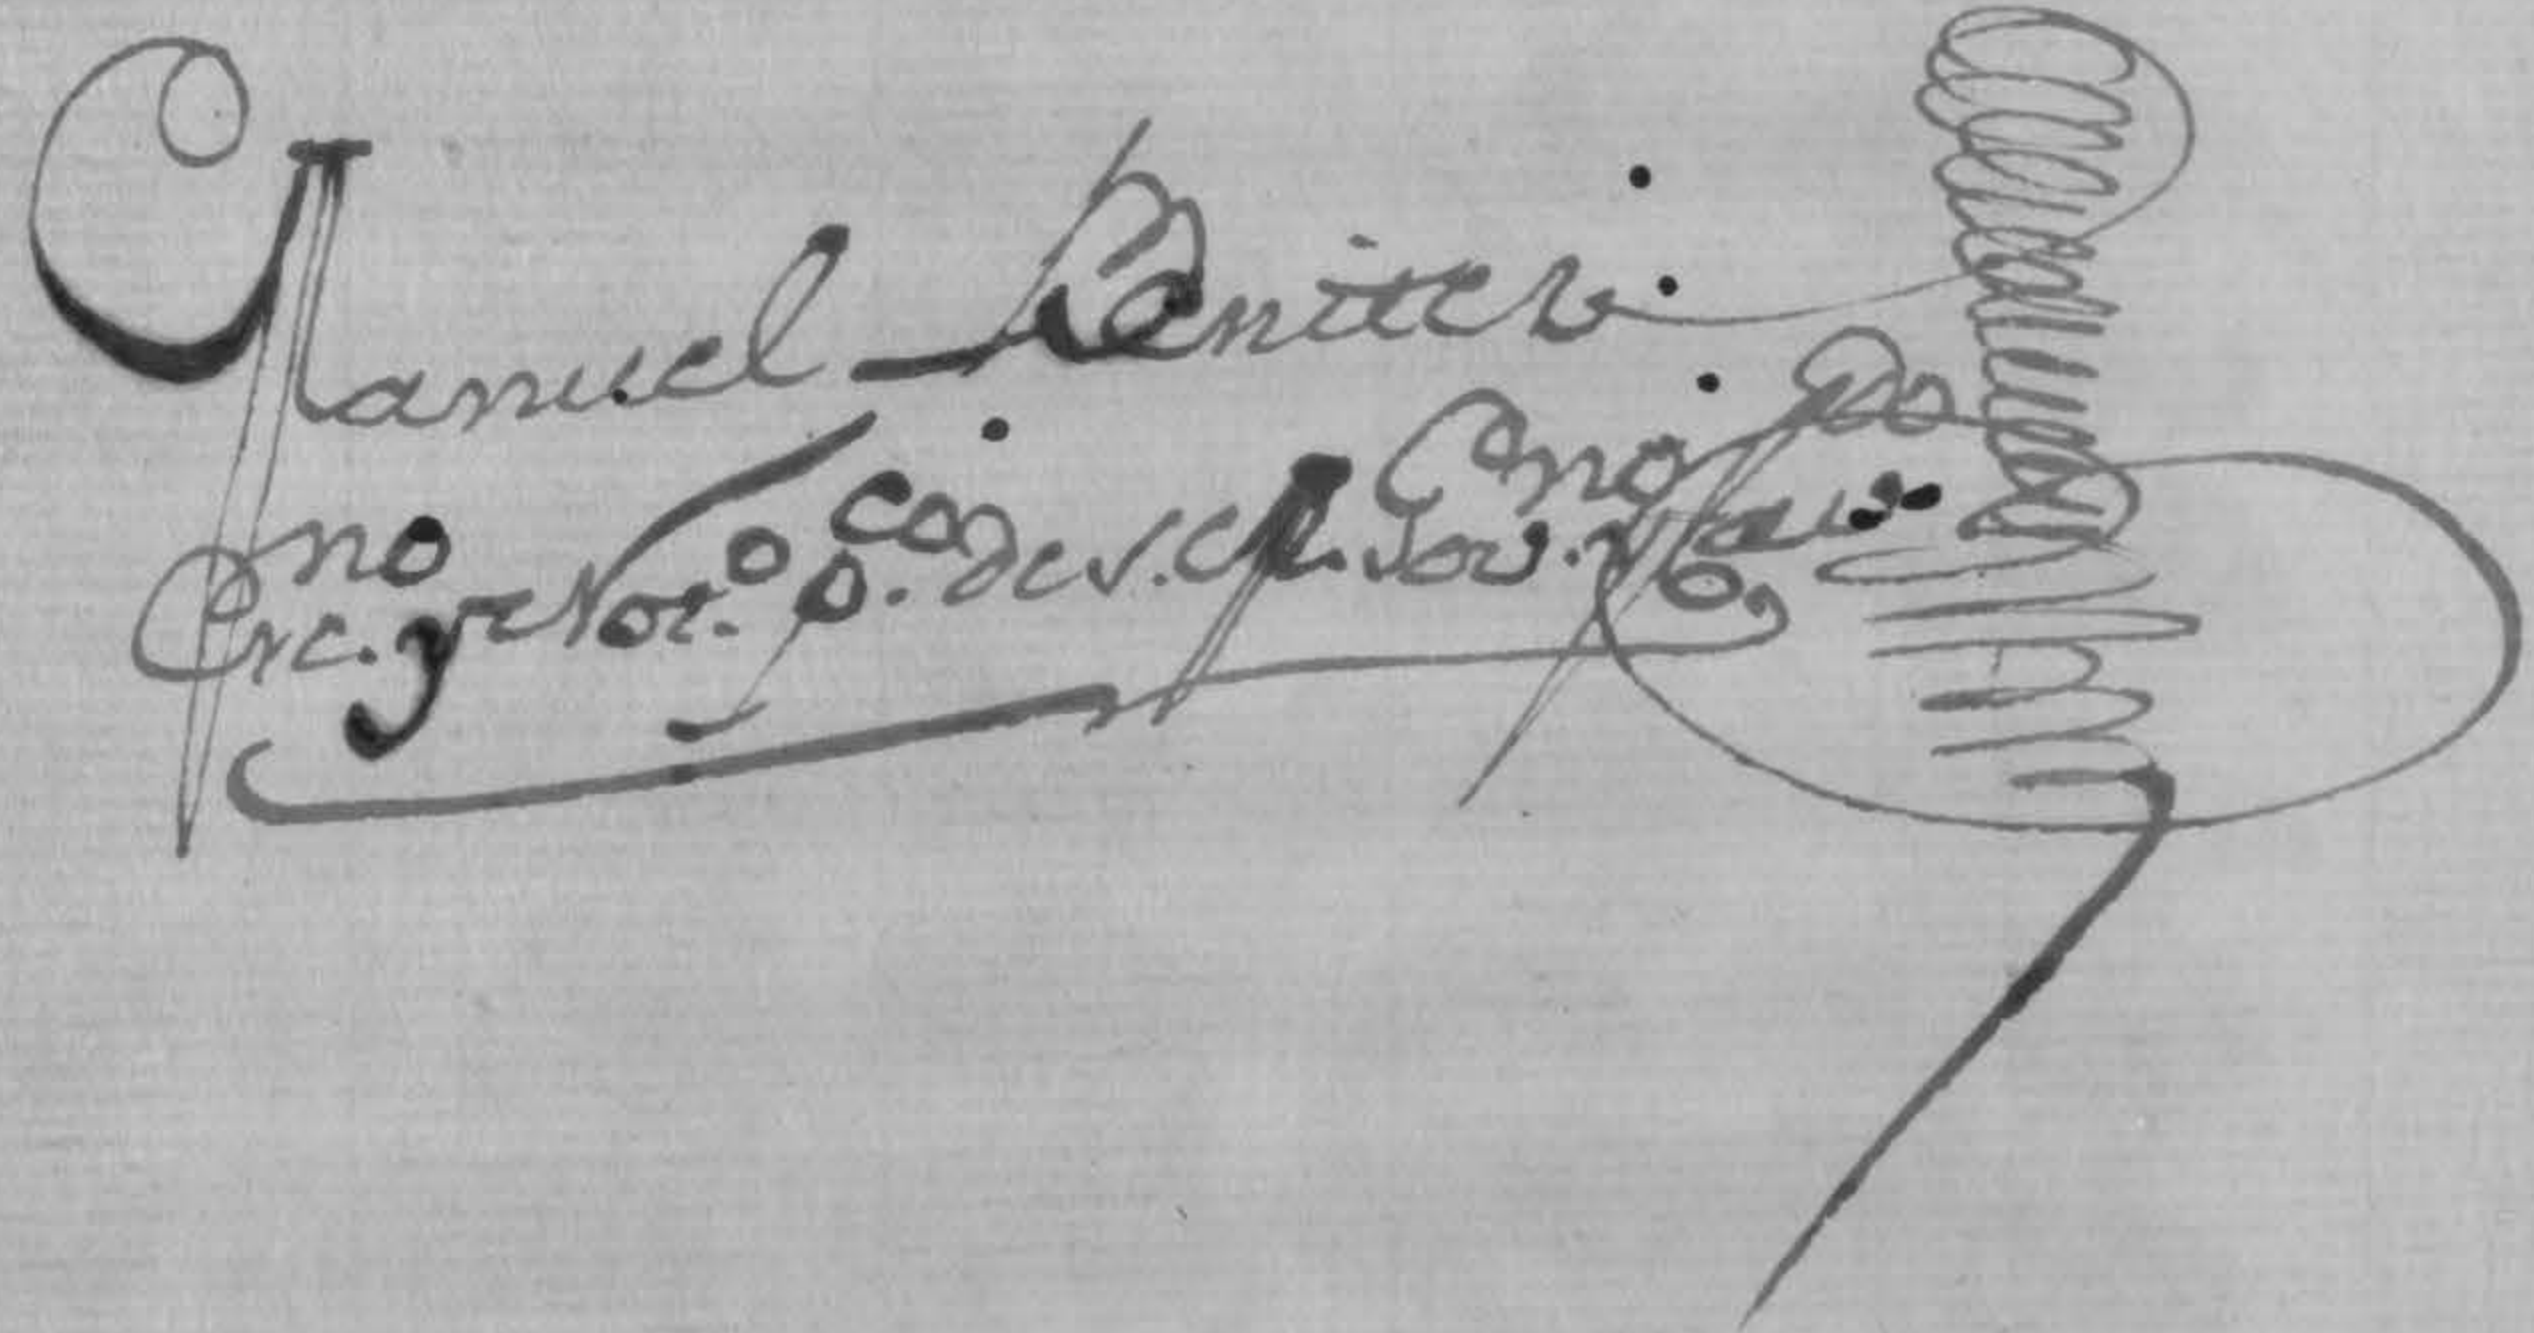 Manuel Benitez
Esc.no y Not.o p.co de S. M. Gov.no y